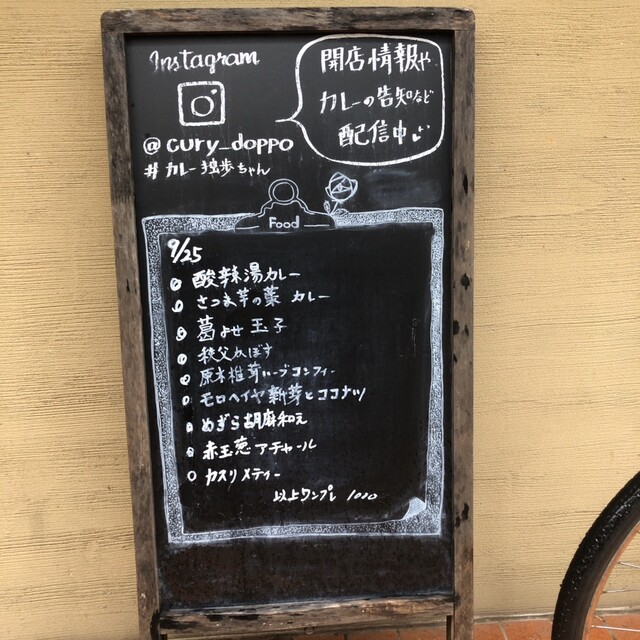 Instagram
@cury_doppo
#カレー独歩ちゃん
開店情報や
カレーの告知など
配信中
Food
9/25
酸辣湯カレー
さつま芋の葉 カレー
葛よせ玉子
秩父かぼす
原木椎茸ハーブコンフィー
モロヘイヤ新芽とココナツ
めぎら胡麻和え
赤玉葱アチャール
カスリメティー
以上ワンプレ 1000